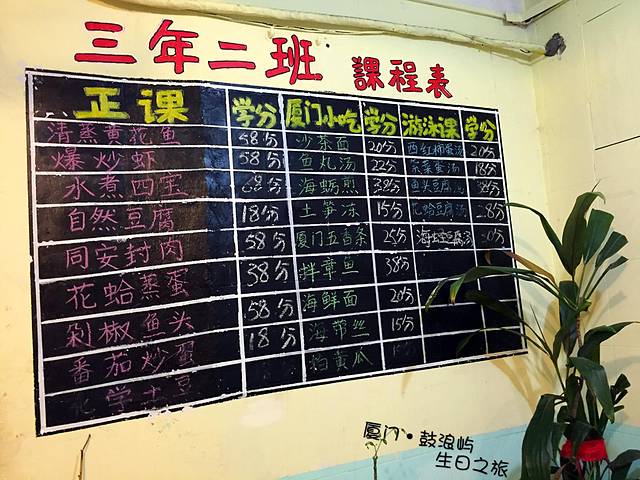 三年二班 課程表
正课 学分 厦门小吃 学分 游泳课 学分
清蒸黄花鱼 58分 沙茶面 20分 西红柿蛋汤 20分
爆炒虾 58分 鱼丸汤 22分 紫菜蛋汤 18分
水煮四宝 68分 海蛎煎 38分 鱼头豆腐汤
自然豆腐 18分 土笋冻 15分 花蛤豆腐汤
同安封肉 58分 厦门五香条 25分
花蛤蒸蛋 38分 拌章鱼 38分
剁椒鱼头 58分 海鲜面 20分
番茄炒蛋 18分 海带丝 15分
化学土豆 拍黄瓜
厦门·鼓浪屿
生日之旅